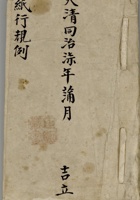 大清同治柒年蒲月
吉立
紙行規例